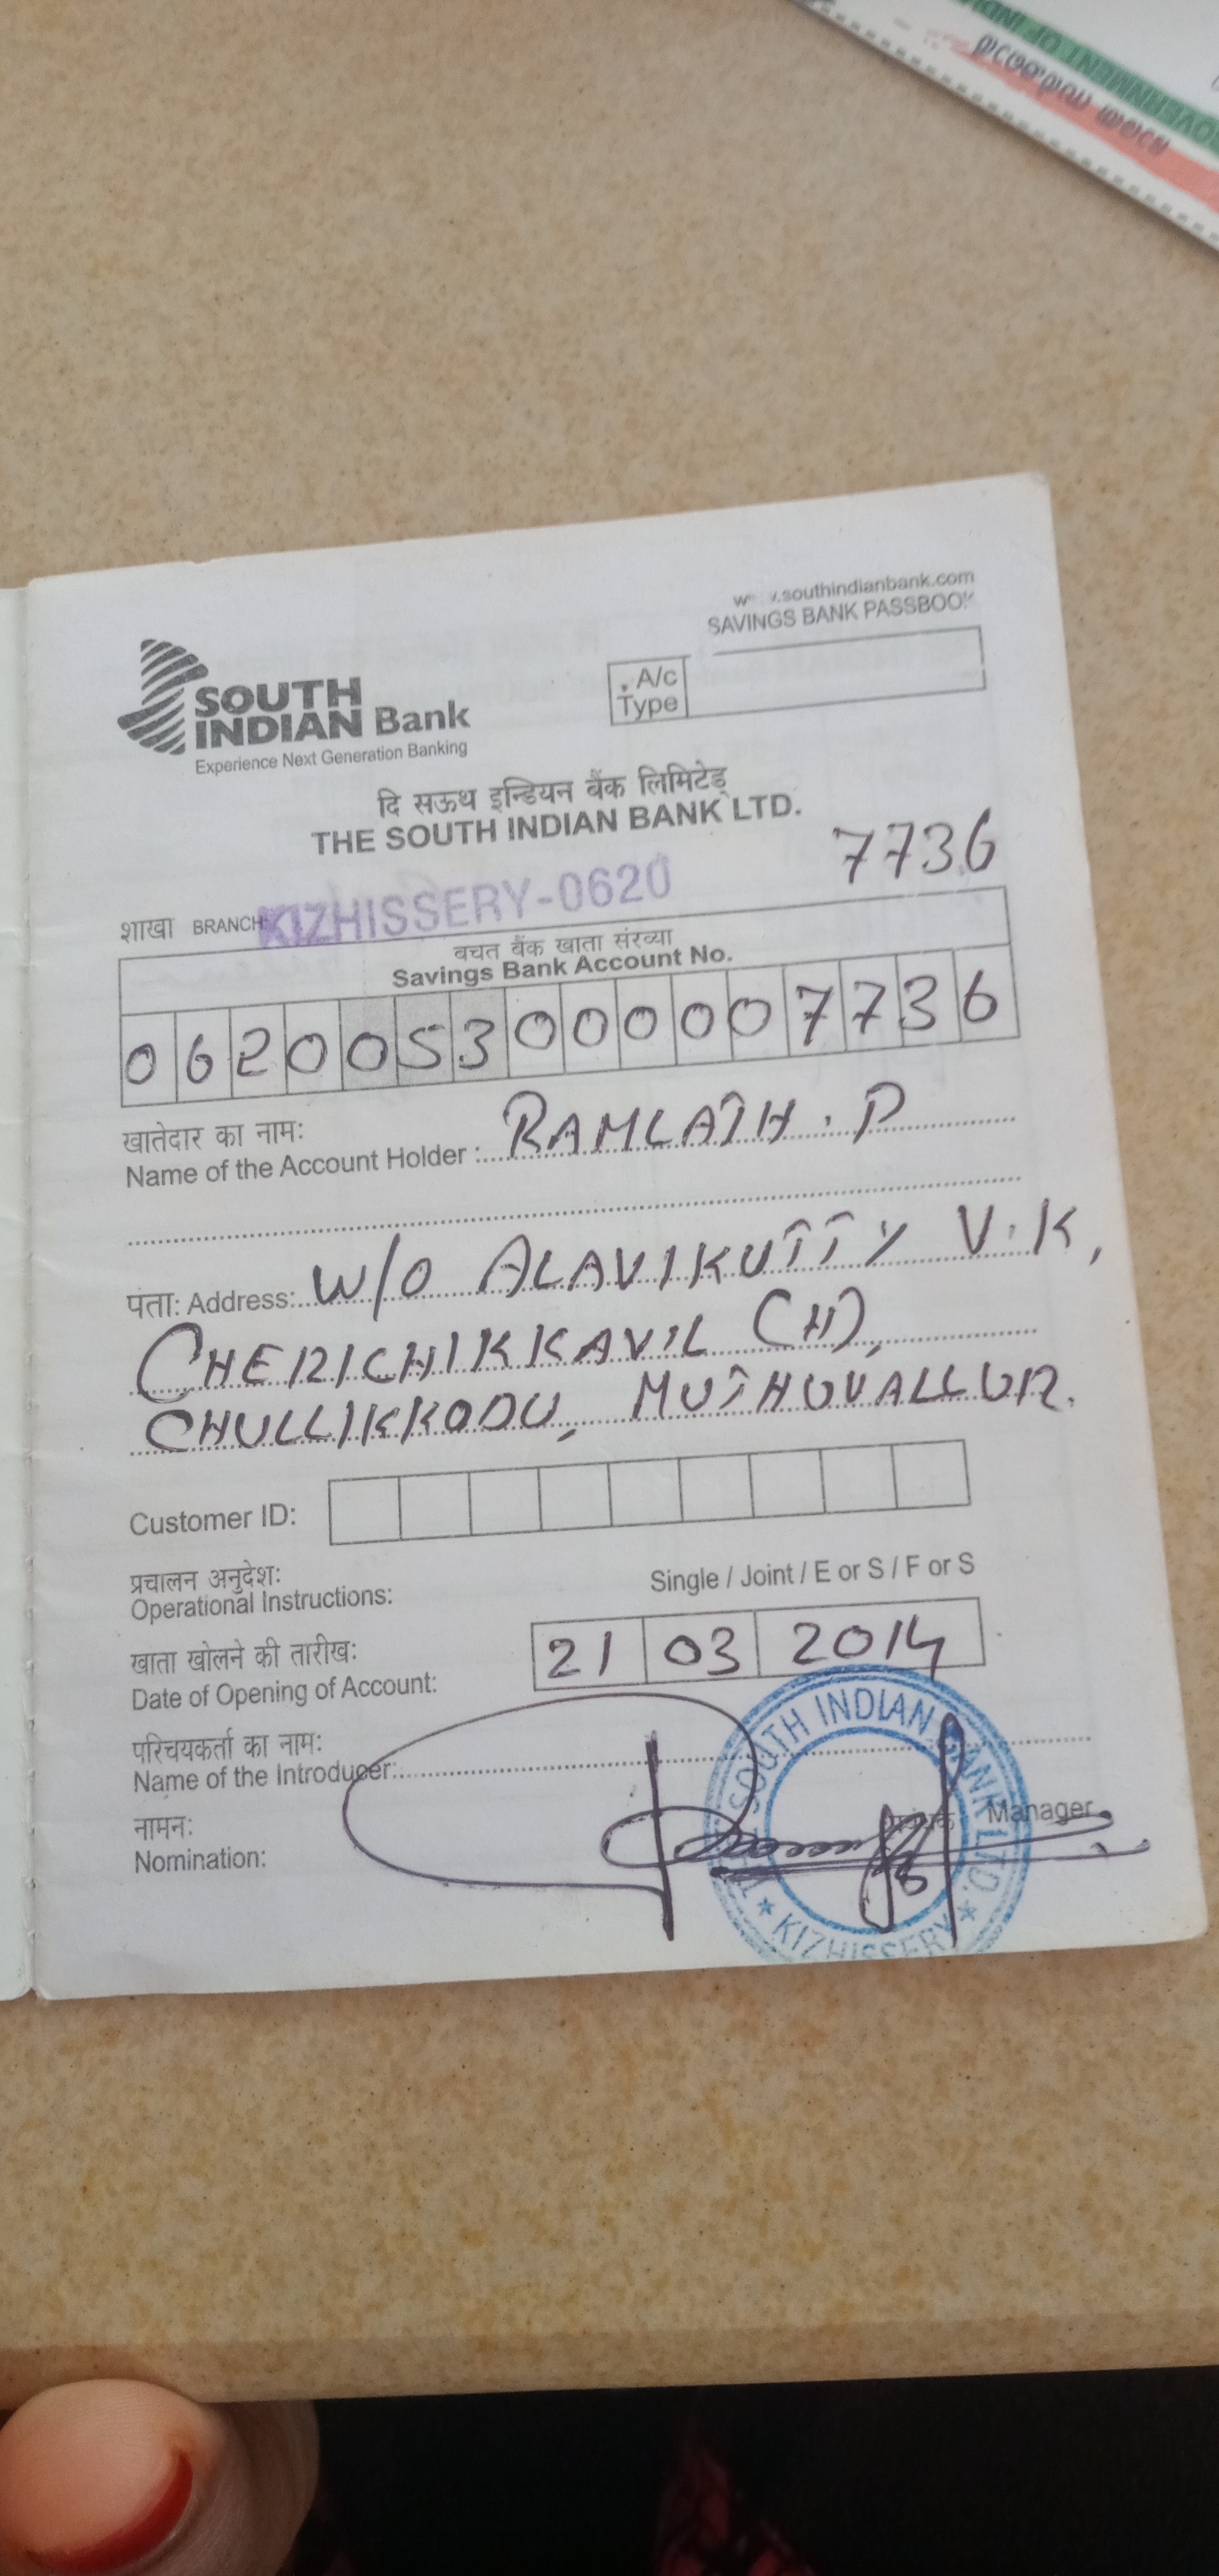 GOVERNMENT OF INDIA
ഭാരത സർക്കാർ
www.southindianbank.com
SAVINGS BANK PASSBOOK
SOUTH
INDIAN Bank
Experience Next Generation Banking
A/c
Type
दि सऊथ इन्डियन बैंक लिमिटेड
THE SOUTH INDIAN BANK LTD.
7736
शाखा BRANCH KIZHISSERY-0620
बचत बैंक खाता संख्या
Savings Bank Account No.
0620053000007736
खातेदार का नाम:
Name of the Account Holder : RAMLATH . P
पता: Address: W/O ALAVIKUTTY V.K,
CHERICHIKKAVIL (H),
CHULLIKKODU, MUTHUVALLUR.
Customer ID:
प्रचालन अनुदेश:
Operational Instructions:
Single / Joint / E or S / F or S
खाता खोलने की तारीख:
Date of Opening of Account:
21 03 2014
परिचयकर्ता का नाम:
Name of the Introducer:
नामन:
Nomination:
Manager
THE SOUTH INDIAN BANK LTD. * KIZHISSERY *